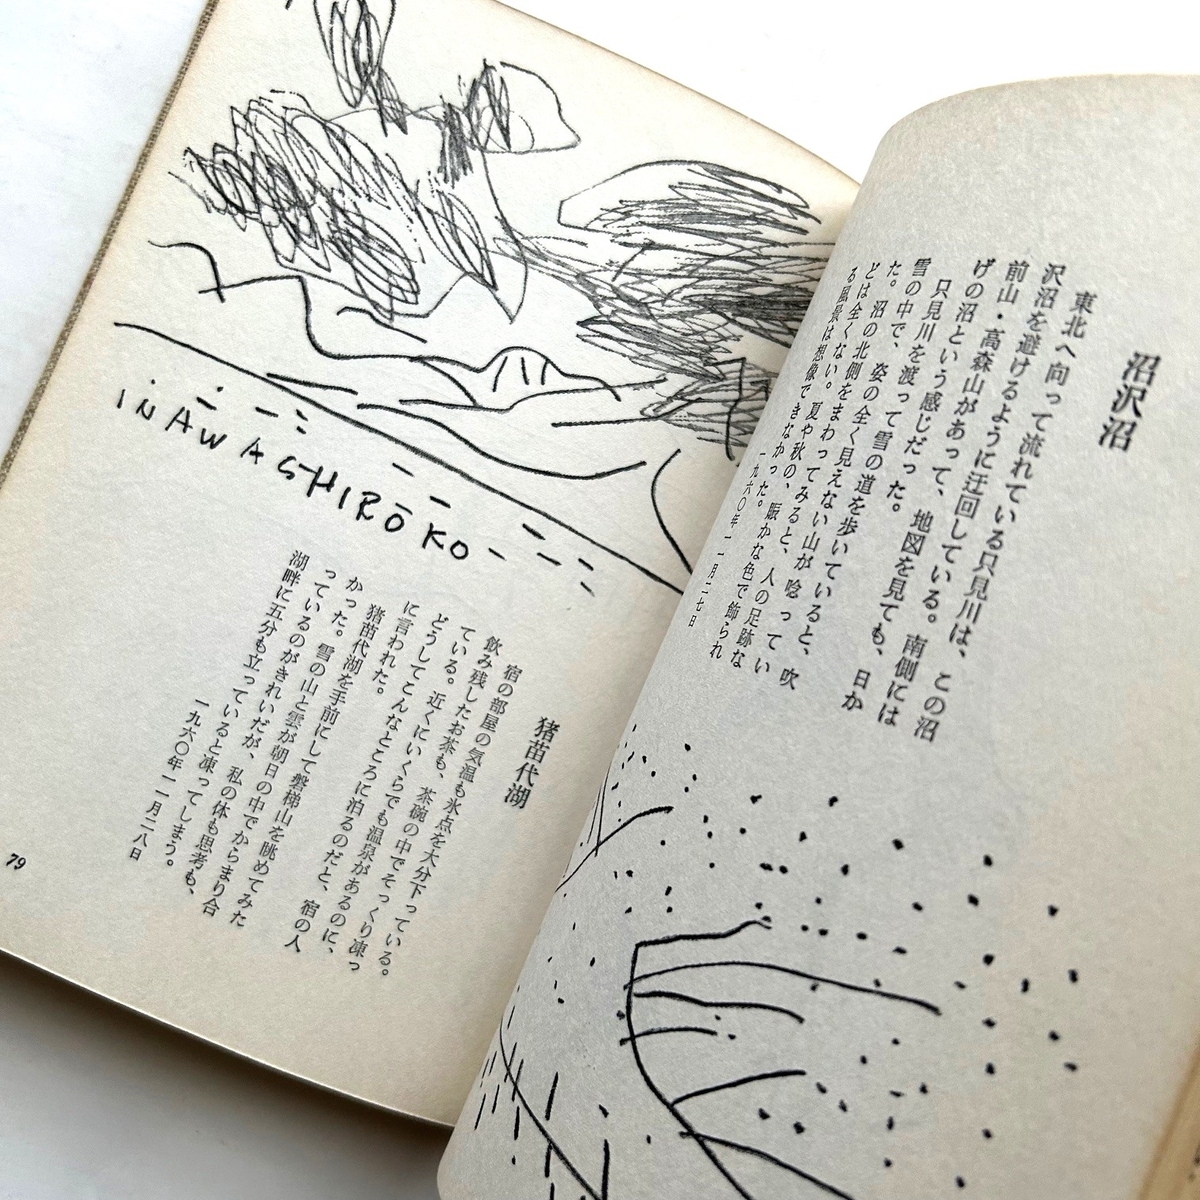 沼沢沼
東北へ向って流れている只見川は、この沼
沢沼を避けるように迂回している。南側には
前山・高森山があって、地図を見ても、日か
げの沼という感じだった。
只見川を渡って雪の道を歩いていると、吹
雪の中で、姿の全く見えない山が唸ってい
た。沼の北側をまわってみると、人の足跡な
どは全くない。夏や秋の、賑かな色で飾られ
る風景は想像できなかった。
一九六〇年一一月二七日
INAWASHIROKO
猪苗代湖
宿の部屋の気温も氷点を大分下っている。
飲み残したお茶も、茶碗の中でそっくり凍っ
ている。近くにいくらでも温泉があるのに、
どうしてこんなところに泊るのだと、宿の人
に言われた。
猪苗代湖を手前にして磐梯山を眺めてみた
かった。雪の山と雲が朝日の中でからまり合
っているのがきれいだが、私の体も思考も、
湖畔に五分も立っていると凍ってしまう。
一九六〇年一一月二八日
79